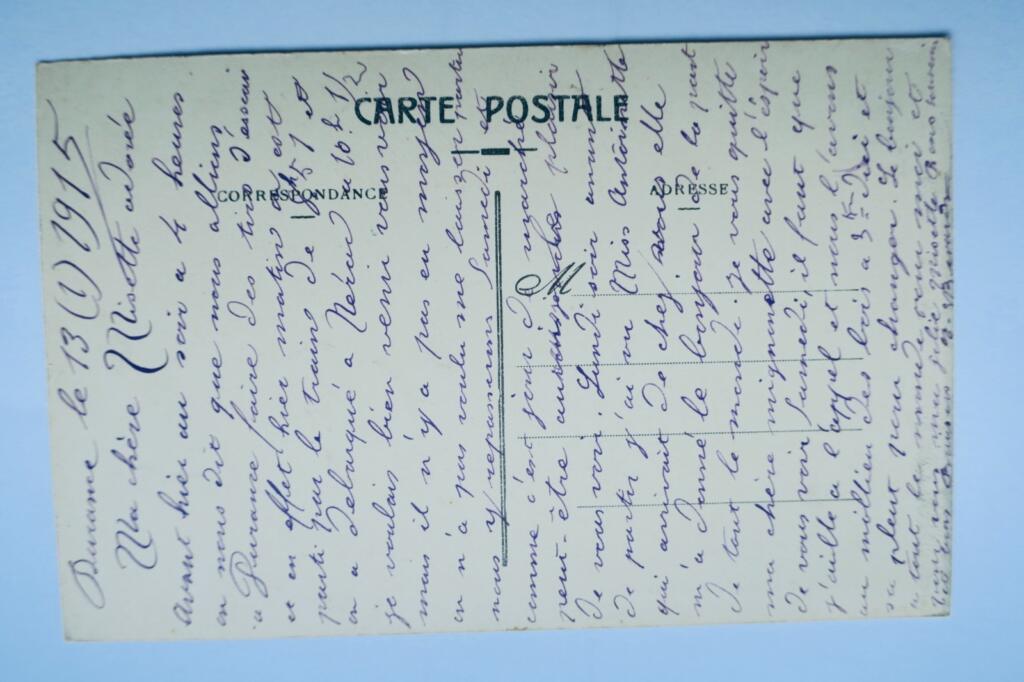 CARTE POSTALE
CORRESPONDANCE
ADRESSE
M
le 13 (1) 1915
Ma chère Misette adorée
Avant hier au soir a 4 heures
on nous dit que nous allions
a Durance faire des tirs d'essai
et en effet hier matin on est
parti par le train de et
on a debarqué a Nérac a 10 h 1/2
je voulais bien venir vous voir
mais il n'y a pas eu moyen
on n'a pas voulu me laisser
nous y repassrons Samedi et
comme c'est jour de marché
peut-être aurai je le plaisir
de vous voir. Lundi soir avant
de partir j'ai vu Miss Antoinette
qui arrivait de chez vous elle
m'a donné le bonjour de la part
de tout le monde. je vous quitte
ma chère mignonette avec l'éspoir
de vous voir Samedi, il faut que
j'aille a l'appel et nous l'avons
au millieu des bois a 3 k d'ici et
sa pleut pour changer. Le bonjour
a tout le monde pour moi et
pour vous ma jolie Misette